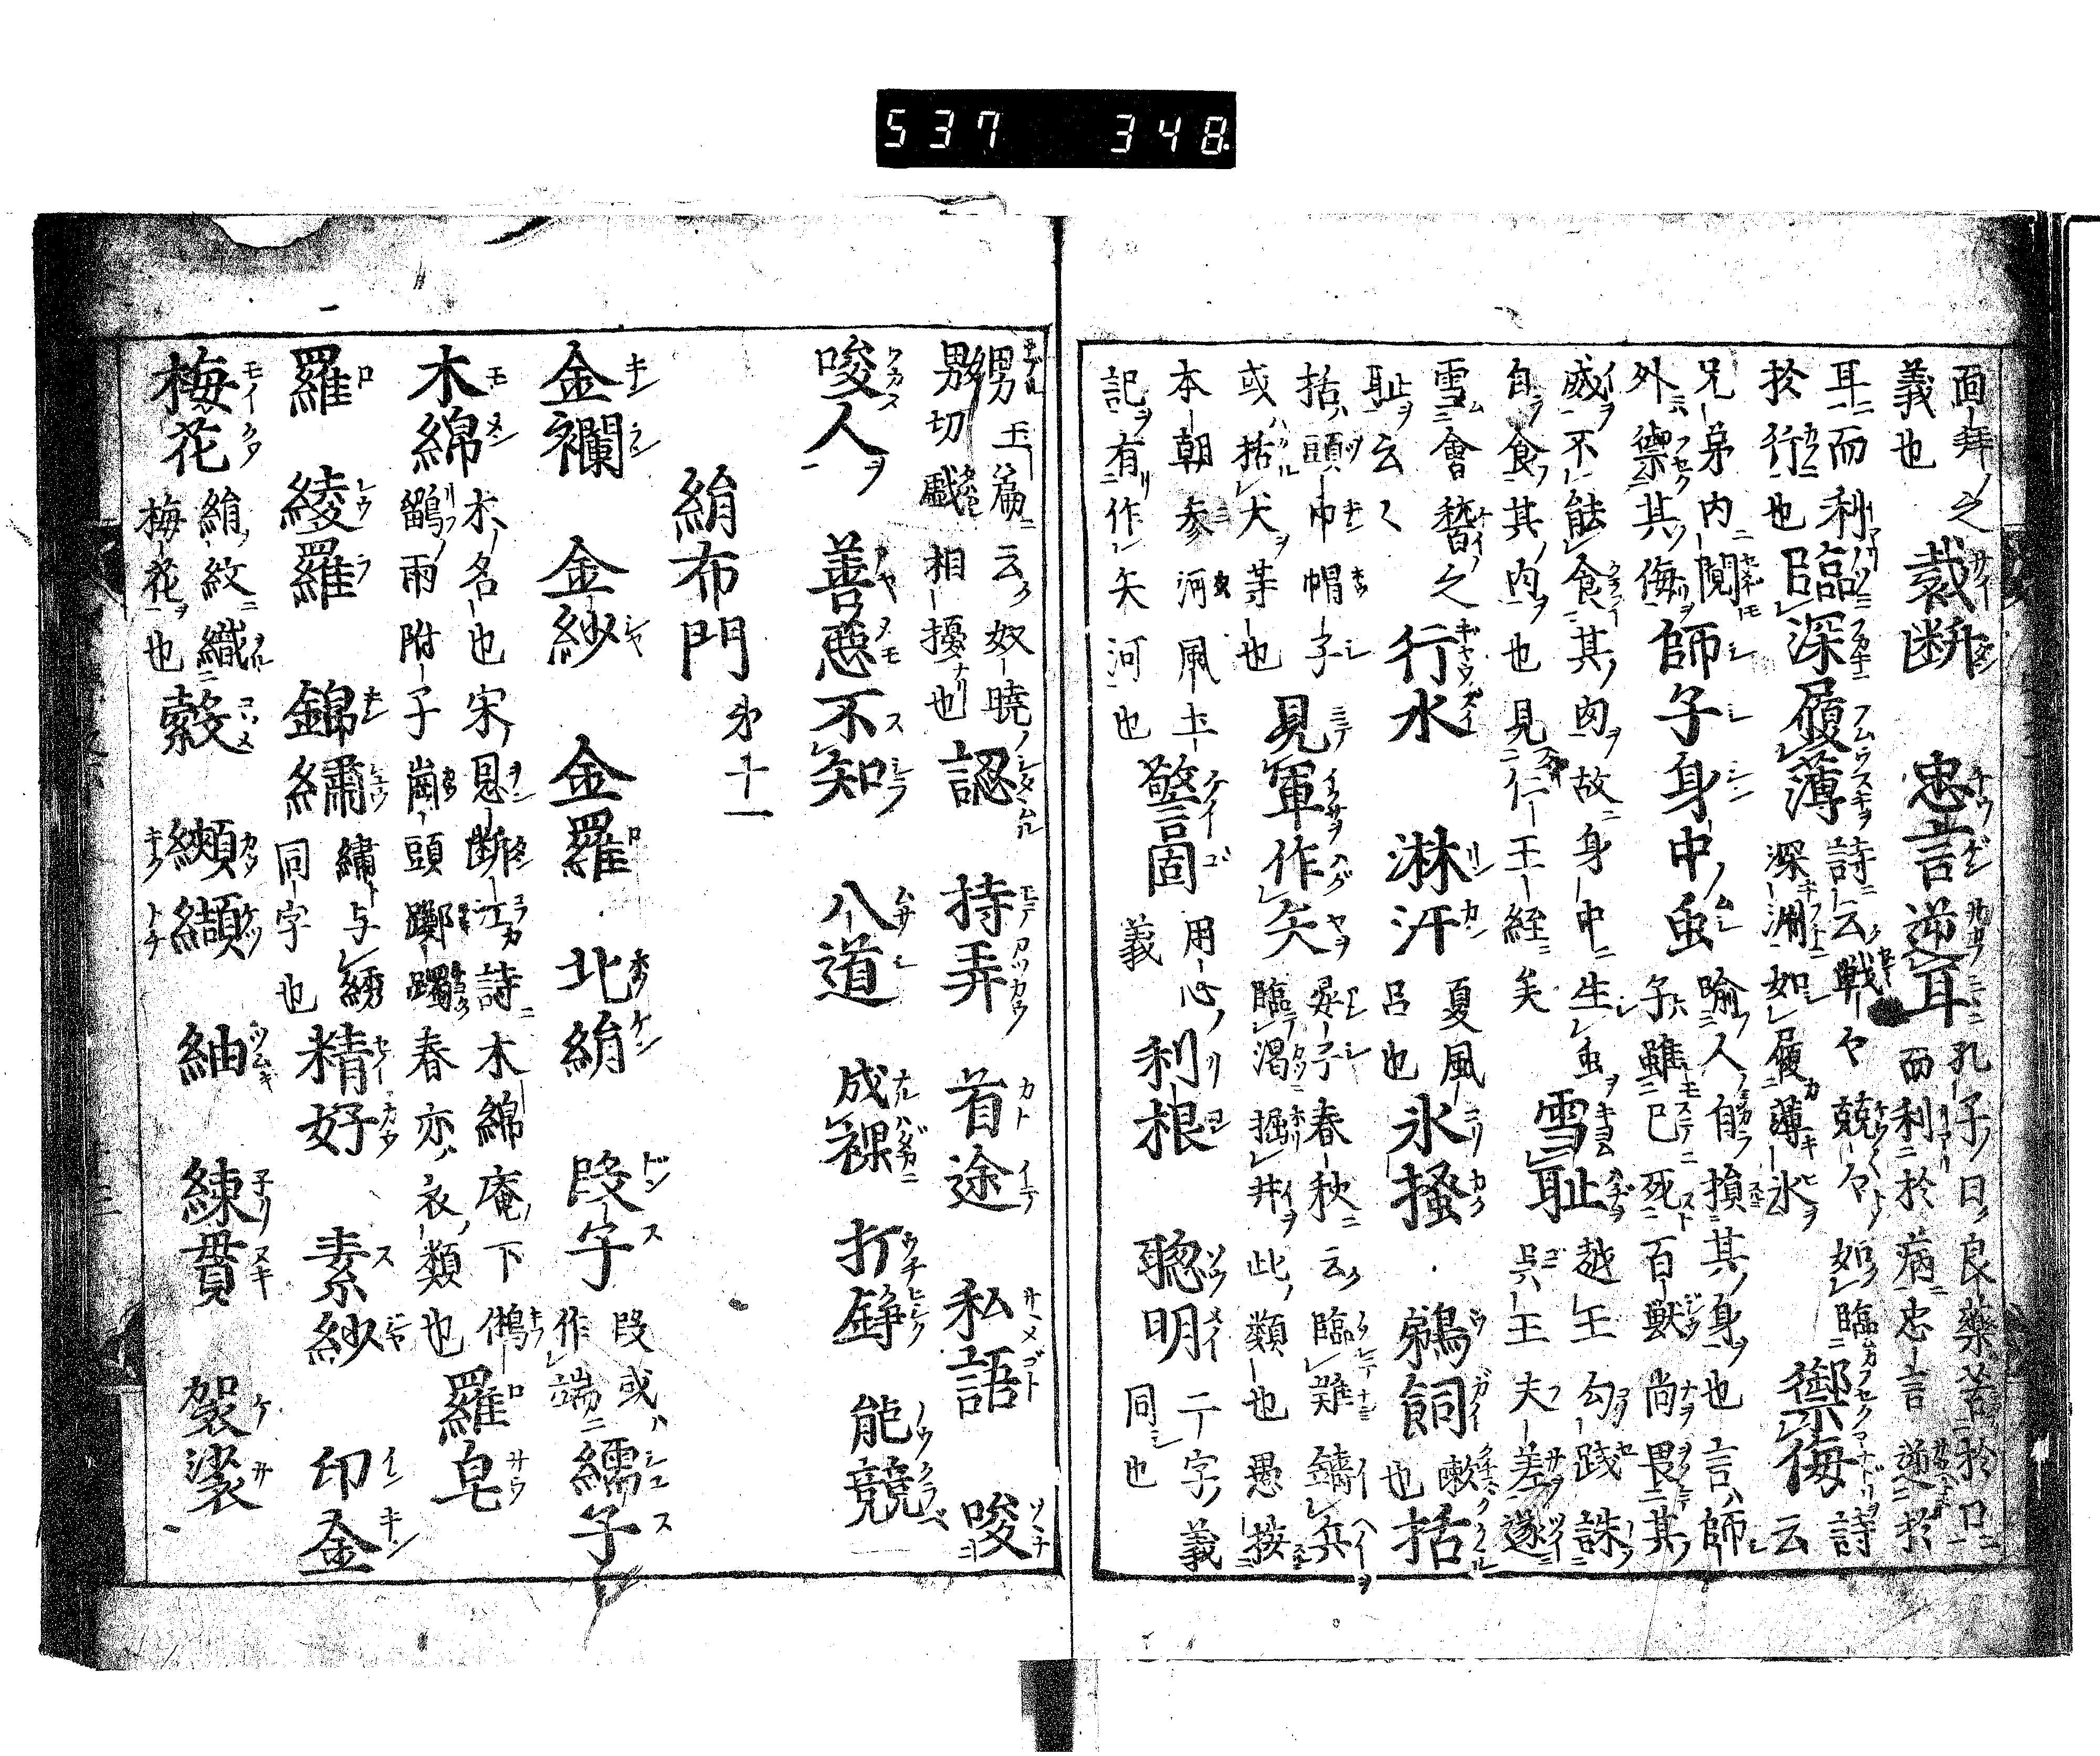 537 348
面拜之
義也
裁断
忠言逆耳
孔子曰良藥苦於口
而利於病忠言逆於
耳而利
於行也
臨深履薄
詩云戰々兢々如臨
深淵如履薄氷
禦侮
詩
云
兄弟内䦧
外禦其侮
師子身中虫
喩人自損其身也言師
子雖已死百獸尚畏其
威不能食其肉故身中生虫
自食其肉也見仁王經矣
雪耻
越王勾踐誅
呉王夫差遂
雪會稽之
耻云々
行水
淋汗
夏風
呂也
氷掻
鵜飼
嗽
也
括
括頭巾帽子
或括犬等也
見軍作矢
晏子春秋云臨難鑄兵
臨渇掘井此類也愚按
本朝参河風土
記有作矢河也
警固
用心
義
利根
聰明
二字義
同也
嬲
玉篇云奴曉
切戯相擾也
認
持弄
首途
私語
唆
唆人
善惡不知
八道
成裸
打錚
能競
絹布門
第十一
金襴
金紗
金羅
北絹
段子
段或
作端
繻子
木綿
木名也宋恩断江詩木綿庵下
鷓雨附子崗頭躑躅春亦衣類也
羅皂
羅
綾羅
錦繡
繡与綉
同字也
精好
素紗
印金
梅花
絹紋織
梅花也
縠
纐纈
紬
練貫
袈裟